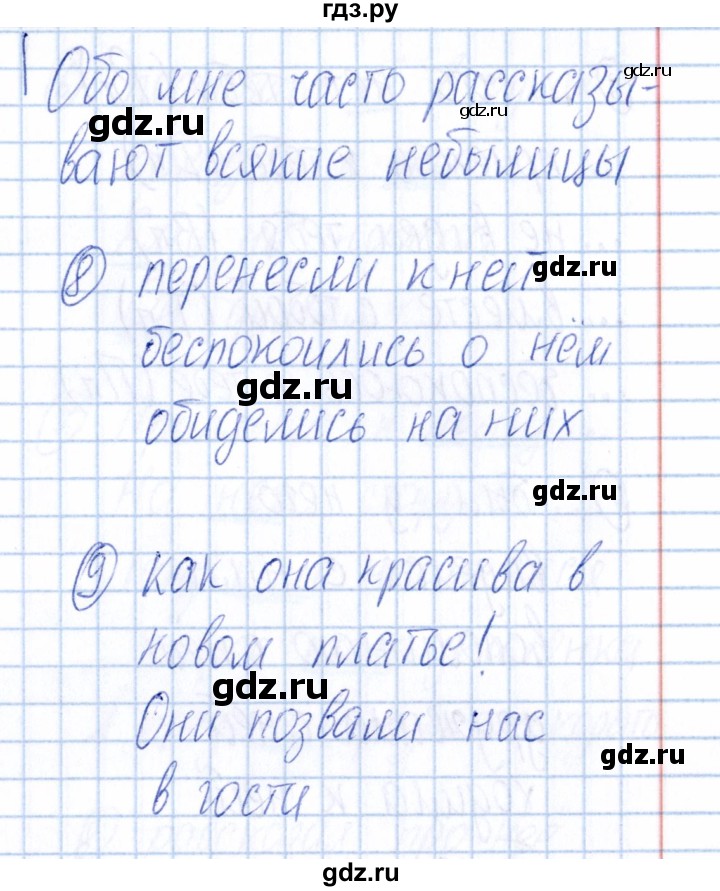 гдз.ру
Обо мне часто рассказы-
gdz.ru
gdz.ru
gdz.ru
вают всякие небылицы
⑧ перенесли к ней
gdz.ru
беспокоились о нём
gdz.ru
обиделись на них
gdz.ru
⑨ как она красива в
новом платье!
gdz.ru
Они позвали нас
gdz.ru
в гости
gdz.ru